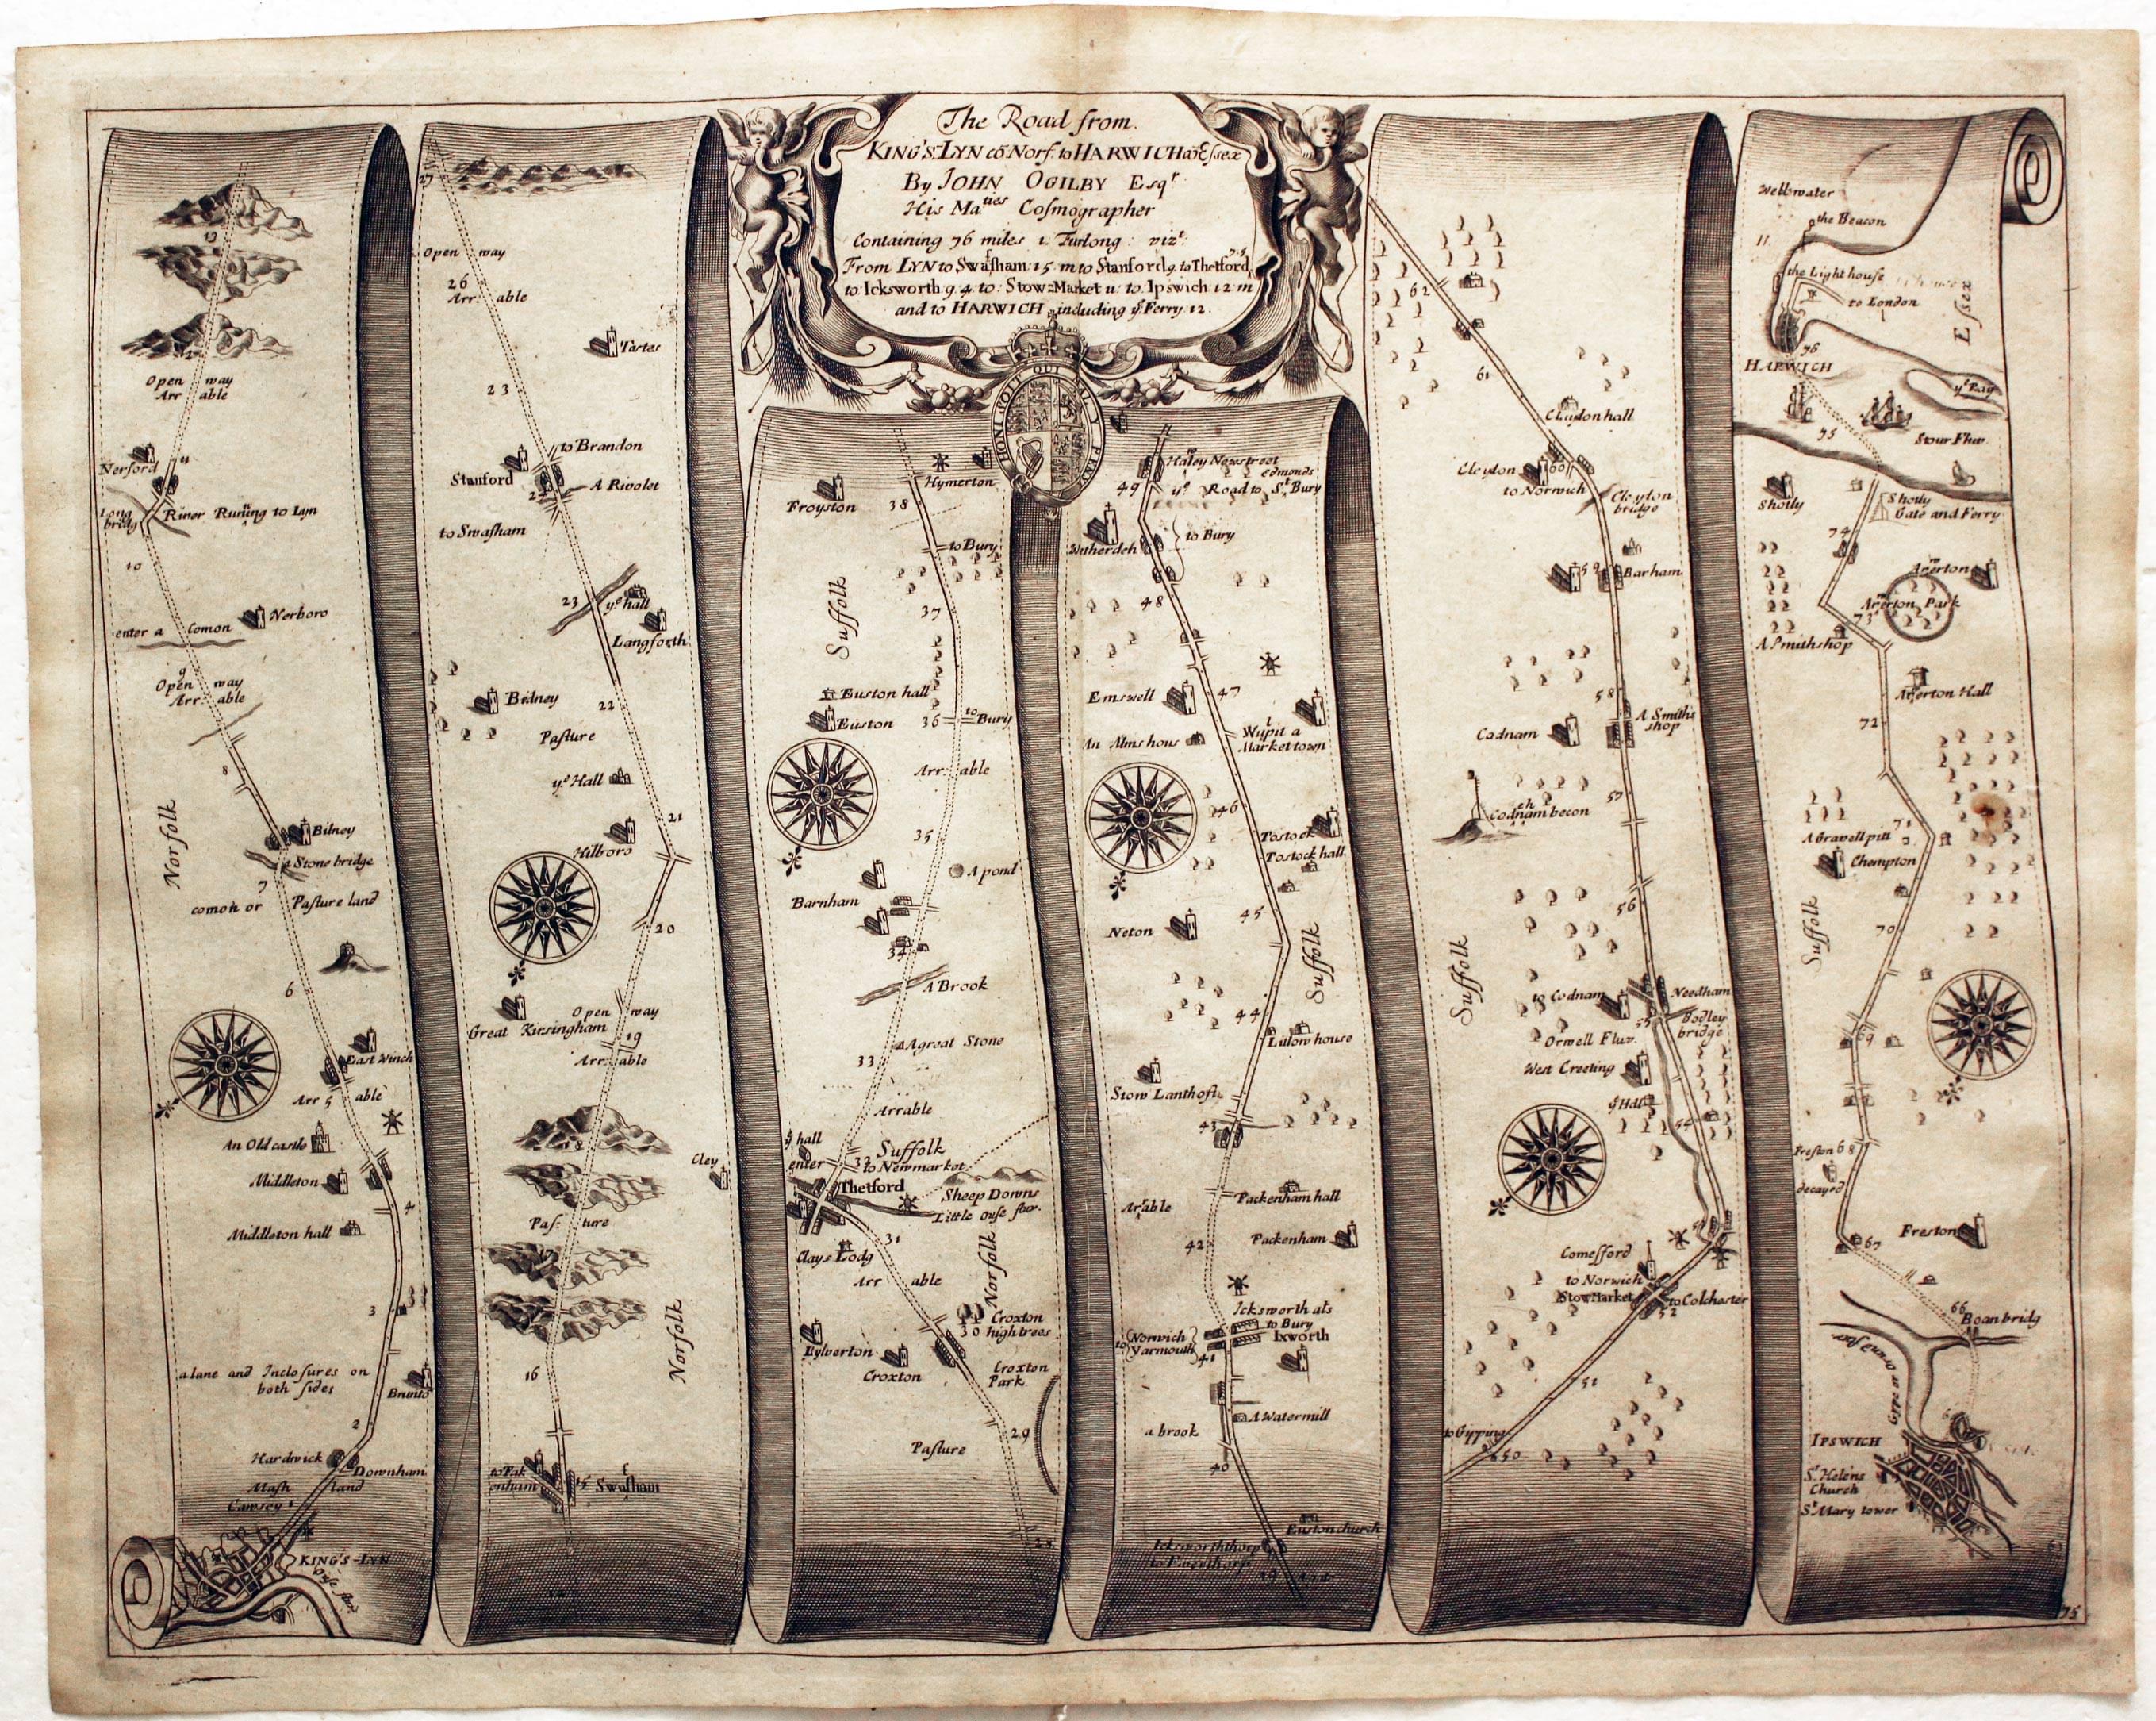 The Road from
KING'S LYN cō Norf. to HARWICH cō Essex
By JOHN OGILBY Esqr
His Maties Cosmographer
Containing 76 miles 1. Furlong: vizt:
From LYN to Swafham: 15 m to Stanford 9. to Thetford 7.5
to Icksworth 9.4 to: Stow=Market 11: to Ipswich 12 m
and to HARWICH including ye Ferry: 12.
HONI SOIT QUI MALY PENS
13
12
Open way
Arr able
Nerford
11
Long bridg
River Runing to Lyn
10
Nerboro
enter a Comon
9
Open way
Arr able
8
Norfolk
Bilney
a Stone bridge
7
comon or Pasture land
6
East Winch
Arr 5 able
An Old castle
Middleton
4
Middleton hall
3
a lane and Inclosures on
both sides
2
Hardwick
Downham
Mash land
Cawsey
KING'S-LYN
Ouse flu.
27
Open way
26
Arr able
Tartas
23
to Brandon
Stanford
A Rivolet
to Swafham
23
ye hall
Langforth
Bidney
22
Pasture
ye Hall
21
Hilboro
20
Great Kirsingham
Open way
19
Arr able
Cley
18
Pas: ture
17
Norfolk
16
to Pak
enham
15
Swafham
Hymerton
Froyston
38
to Bury
37
Suffolk
Euston hall
Euston
36
to Bury
Arr able
35
A pond
Barnham
34
A Brook
A great Stone
33
Arrable
ye hall
Suffolk
enter
32
to Newmarket
Thetford
Sheep Downs
Little Ouse flu.
31
Clays Lodg
Arr able
Norfolk
Croxton
30
high trees
Kylverton
Croxton
Croxton
Park
29
Pasture
28
Haley Newstreet
49
ye Road to St Edmonds Bury
Witherden
to Bury
48
Emswell
47
Wupit a
Market town
An Almshous
46
Tostock
Tostock hall
Neton
45
Suffolk
44
Litlow house
Stow Lanthoft
43
Packenham hall
Arrable
42
Packenham
Icksworth als
to Bury
Ixworth
to Norwich
Yarmouth
41
A Watermill
a brook
40
Euston church
Icksworththorp
39
62
61
Claydon hall
Cleydon
60
to Norwich
Cloydon
bridge
59
Barham
58
Codnam
A Smiths
shop
57
Codnam becon
56
Suffolk
to Codnam
Needham
55
Bodley
bridge
Orwell Fluv.
West Creeting
ye Hall
54
53
Comesford
to Norwich
StowMarket
to Colchester
52
51
to Gypping
50
Wellswater
the Beacon
11
the Light house
to London
Essex
76
HARWICH
ye Ray
75
Stour Fluv.
Shotly
Shotly
Gate and Ferry
74
Arwerton
Arwerton Park
73
A Smith shop
Arwerton Hall
72
A Gravell pitt
71
Chempton
Suffolk
70
69
Freston 68
decayed
Freston
67
66
Boanbridg
Gype or Orwel fluv
IPSWICH
St Helens
Church
St Mary tower
75